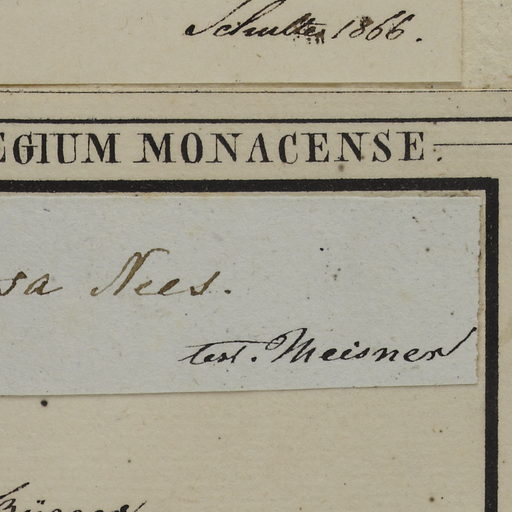 Schultes 1866.
EGIUM MONACENSE.
sa Nees.
test. Meisner